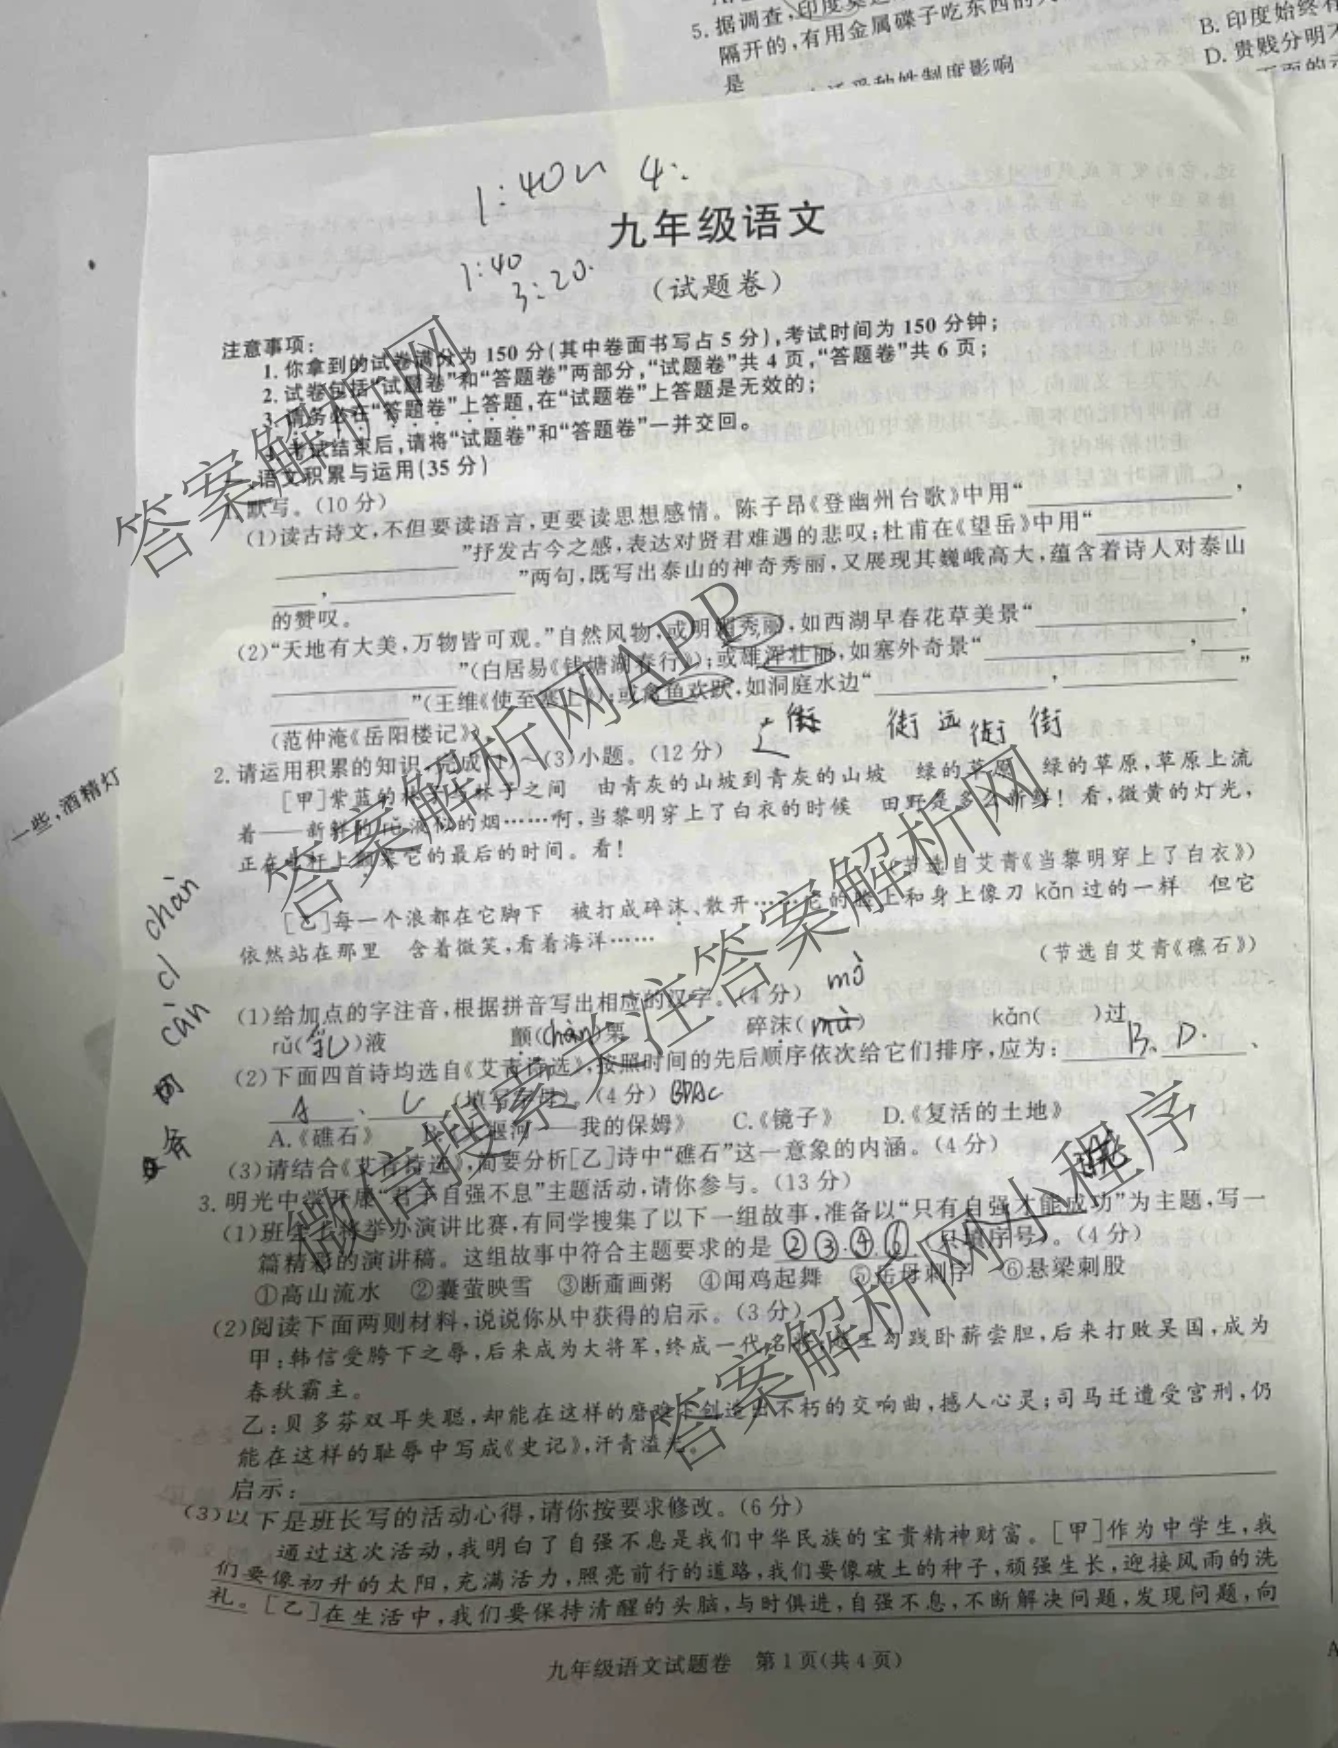 5. 据调查，印度
隔开的，有用金属碟子吃东西的
是
B. 印度始终
D. 贵贱分明
种姓制度影响
1:40~ 4:
九年级语文
1:40
3:20.
（试题卷）
注意事项：
1. 你拿到的试卷满分为150分（其中卷面书写占5分），考试时间为150分钟；
2. 试卷包括“试题卷”和“答题卷”两部分，“试题卷”共4页，“答题卷”共6页；
3. 请务必在“答题卷”上答题，在“试题卷”上答题是无效的；
考试结束后，请将“试题卷”和“答题卷”一并交回。
语文积累与运用（35分）
1. 默写。（10分）
（1）读古诗文，不但要读语言，更要读思想感情。陈子昂《登幽州台歌》中用“，
”抒发古今之感，表达对贤君难遇的悲叹；杜甫在《望岳》中用“
，”两句，既写出泰山的神奇秀丽，又展现其巍峨高大，蕴含着诗人对泰山
的赞叹。
（2）“天地有大美，万物皆可观。”自然风物，或明媚秀丽，如西湖早春花草美景“，
”（白居易《钱塘湖春行》）；或雄浑壮丽，如塞外奇景“，
”（王维《使至塞上》）；或禽鱼欢跃，如洞庭水边“，”
（范仲淹《岳阳楼记》）。
街 街 远 街 街
2. 请运用积累的知识，完成（1）～（3）小题。（12分）
［甲］紫蓝的林子与林子之间 由青灰的山坡到青灰的山坡 绿的草原 绿的草原，草原上流
着——新鲜的rǔ液似的烟……啊，当黎明穿上了白衣的时候 田野是多么新鲜！看，微黄的灯光，
正在电杆上颤栗它的最后的时间。看！
（节选自艾青《当黎明穿上了白衣》）
［乙］每一个浪都在它脚下 被打成碎沫、散开……它的脸上和身上像刀kǎn过的一样 但它
依然站在那里 含着微笑，看着海洋……
（节选自艾青《礁石》）
一些，酒精灯
càn cì chàn
（1）给加点的字注音，根据拼音写出相应的汉字。（4分） mò
rǔ（乳）液 颤（chàn）栗 碎沫（） kǎn（ ）过
（2）下面四首诗均选自《艾青诗选》，按照时间的先后顺序依次给它们排序，应为： B、D.、
A、C（填写字母）。（4分）BDAC
A.《礁石》 B.《大堰河——我的保姆》 C.《镜子》 D.《复活的土地》
（3）请结合《艾青诗选》，简要分析［乙］诗中“礁石”这一意象的内涵。（4分）
3. 明光中学开展“君子自强不息”主题活动，请你参与。（13分）
（1）班会上将举办演讲比赛，有同学搜集了以下一组故事，准备以“只有自强才能成功”为主题，写一
篇精彩的演讲稿。这组故事中符合主题要求的是②③④⑥（只填序号）。（4分）
①高山流水 ②囊萤映雪 ③断齑画粥 ④闻鸡起舞 ⑤岳母刺字 ⑥悬梁刺股
（2）阅读下面两则材料，说说你从中获得的启示。（3分）
甲：韩信受胯下之辱，后来成为大将军，终成一代名将；越王勾践卧薪尝胆，后来打败吴国，成为
春秋霸主。
乙：贝多芬双耳失聪，却能在这样的磨难下创造出不朽的交响曲，撼人心灵；司马迁遭受宫刑，仍
能在这样的耻辱中写成《史记》，汗青溢光。
启示：
（3）以下是班长写的活动心得，请你按要求修改。（6分）
通过这次活动，我明白了自强不息是我们中华民族的宝贵精神财富。［甲］作为中学生，我
们要像初升的太阳，充满活力，照亮前行的道路，我们要像破土的种子，顽强生长，迎接风雨的洗
礼。［乙］在生活中，我们要保持清醒的头脑，与时俱进，自强不息，不断解决问题，发现问题，向
九年级语文试题卷 第1页（共4页）
答案解析网
答案解析网APP
微信搜索关注答案解析网
答案解析网小程序